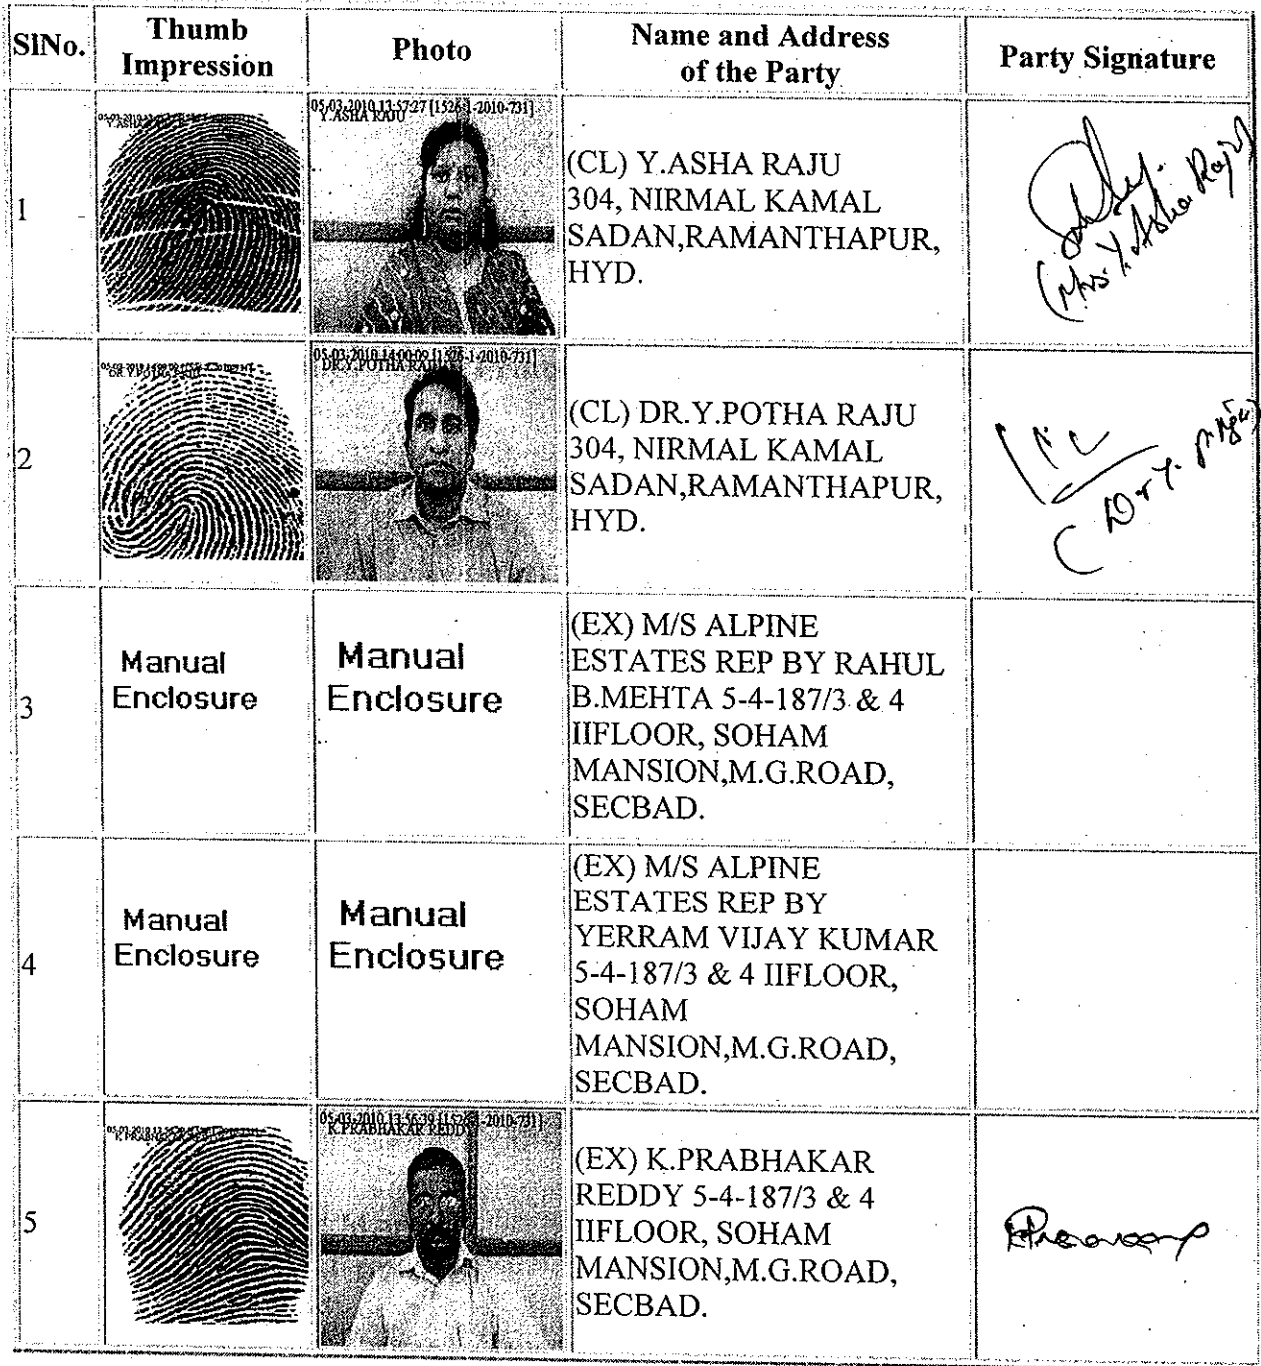 SlNo.
Thumb
Impression
Photo
Name and Address
of the Party
Party Signature
1
05-03-2010 13:57:27 [1526-1-2010-731]
Y.ASHA RAJU
(CL) Y.ASHA RAJU
304, NIRMAL KAMAL
SADAN,RAMANTHAPUR,
HYD.
(Mrs. Y. Asha Raju)
2
05-03-2010 14:00:09 [1526-1-2010-731]
DR.Y.POTHA RAJU
(CL) DR.Y.POTHA RAJU
304, NIRMAL KAMAL
SADAN,RAMANTHAPUR,
HYD.
(Dr Y.
3
Manual
Enclosure
Manual
Enclosure
(EX) M/S ALPINE
ESTATES REP BY RAHUL
B.MEHTA 5-4-187/3 & 4
IIFLOOR, SOHAM
MANSION,M.G.ROAD,
SECBAD.
4
Manual
Enclosure
Manual
Enclosure
(EX) M/S ALPINE
ESTATES REP BY
YERRAM VIJAY KUMAR
5-4-187/3 & 4 IIFLOOR,
SOHAM
MANSION,M.G.ROAD,
SECBAD.
5
05-03-2010 13:56:39 [1526-1-2010-731]
K.PRABHAKAR REDDY
(EX) K.PRABHAKAR
REDDY 5-4-187/3 & 4
IIFLOOR, SOHAM
MANSION,M.G.ROAD,
SECBAD.